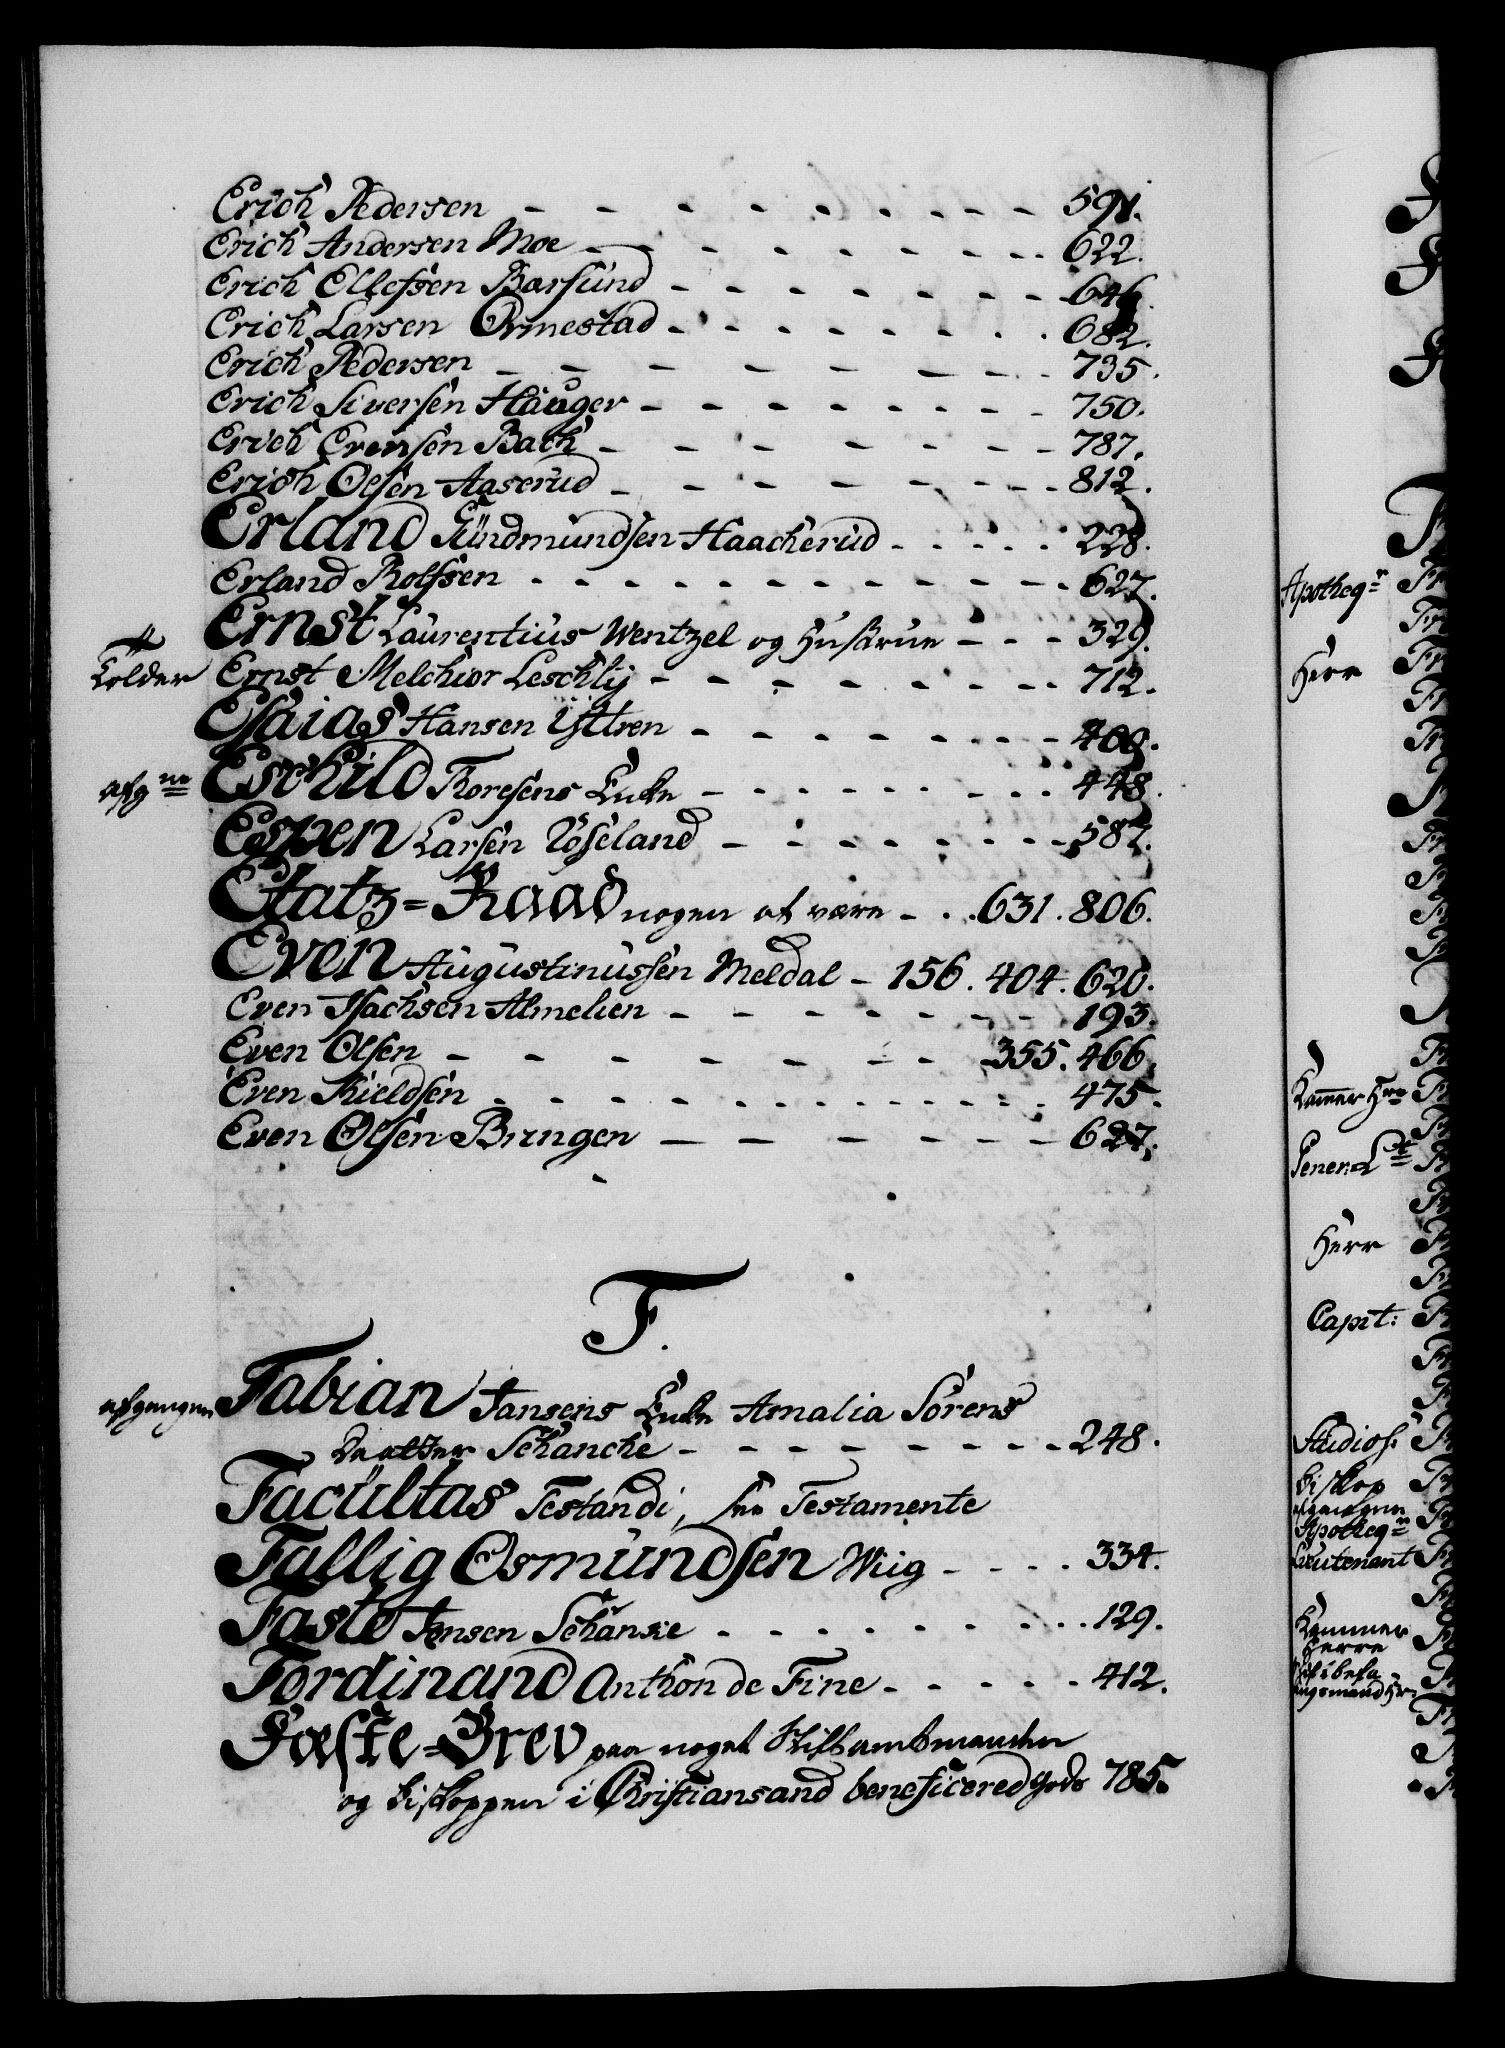 Erich Pedersen - - - - - - - - 591.
Erich Andersen Moe - - - - - - - 622.
Erich Ellefsen Barsund - - - - - - - 646.
Erich Larsen Ormestad - - - - - - - 682.
Erich Pedersen - - - - - - - - 735.
Erich Siversen Hauger - - - - - - - 750.
Erich Evensen Bach - - - - - - - 787.
Erich Olsen Aaserud - - - - - - - 812.
Erland Gundmundsen Haacherud - - - - - 228.
Erland Rolfsen - - - - - - - - 627.
Ernst Laurentius Wentzel og Hustrue - - - 329.
Ernst Melchior Leschlij - - - - - - - 712.
Esaias Hansen Yttren - - - - - - - 400.
afgne Eschild Thoresens Enke - - - - - - - 448.
Espen Larsen Röseland - - - - - - - 582.
Etatz=Raad nogen at være - . . 631. 806.
Even Augustinussen Meldal - 156. 404. 620.
Even Isachsen Almelien - - - - - - - 193.
Even Olsen - - - - - - - 355. 466.
Even Kieldsen - - - - - - - - 475.
Even Olsen Bungen - - - - - - - 627.
F.
afgangen Fabian Jansens Enke Amalia Sörens
Daatter Schancke - - - - - - - 248.
Facultas Testandi, see Testamente
Fallig Osmundsen Wiig - - - - 334.
Faste Jensen Schanke - - - - - - - 129.
Ferdinand Anthon de Fine - - - - - 412.
Fæste=Brev paa noget Stiftamtmanden
og Biskoppen i Christiansand beneficered Gods 785.
Apotheqr
Herr
Kammer Hre
Gener: Lt
Herr
Capit:
Studios:
Biskop
afgangne
Apotheqr
Lieutenant
Kammer
Herre